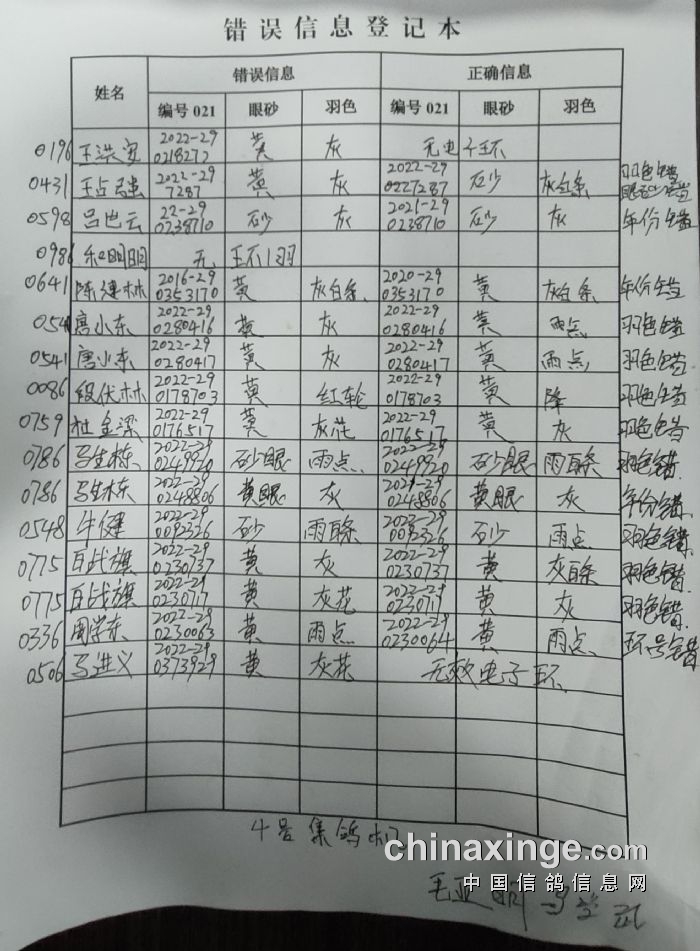 错误信息登记本
姓名 错误信息 正确信息
编号021 眼砂 羽色 编号021 眼砂 羽色
0196 王洪安 2022-29 0218272 黄 灰 无电子环
0431 王占强 2022-29 7287 黄 灰 2022-29 0227287 砂 灰白条 羽色错 眼砂错
0598 吕世云 22-29 0238710 砂 灰 2021-29 0238710 砂 灰 年份错
0986 明明 无 环1羽
0641 陈建林 2016-29 0353170 黄 灰白条 2020-29 0353170 黄 灰白条 年份错
0541 唐小东 2022-29 0280416 黄 灰 2022-29 0280416 黄 雨点 羽色错
0541 唐小东 2022-29 0280417 黄 灰 2022-29 0280417 黄 雨点 羽色错
0086 伏林 2022-29 0178703 黄 红轮 2022-29 0178703 黄 绛 羽色错
0759 杜金梁 2022-29 0176517 黄 灰花 2022-29 0176517 黄 灰 羽色错
0786 马生栋 2022-29 0249920 砂眼 雨点 2022-29 0249920 砂眼 雨白条 羽色错
0786 马生栋 2022-29 0248806 黄眼 灰 2021-29 0248806 黄眼 灰 年份错
0548 牛健 2022-29 0092326 砂 雨白条 2022-29 0092326 砂 雨点 羽色错
0775 白战旗 2022-29 0230737 黄 灰 2022-29 0230737 黄 灰白条 羽色错
0775 白战旗 2022-29 0230717 黄 灰花 2022-29 0230717 黄 灰 羽色错
0336 周学东 2022-29 0230063 黄 雨点 2022-29 0230064 黄 雨点 环号错
0506 马进义 2022-29 0373929 黄 灰花 无效电子环
4号集鸽机
chinaxinge.com
中国信鸽信息网
毛亚明 马